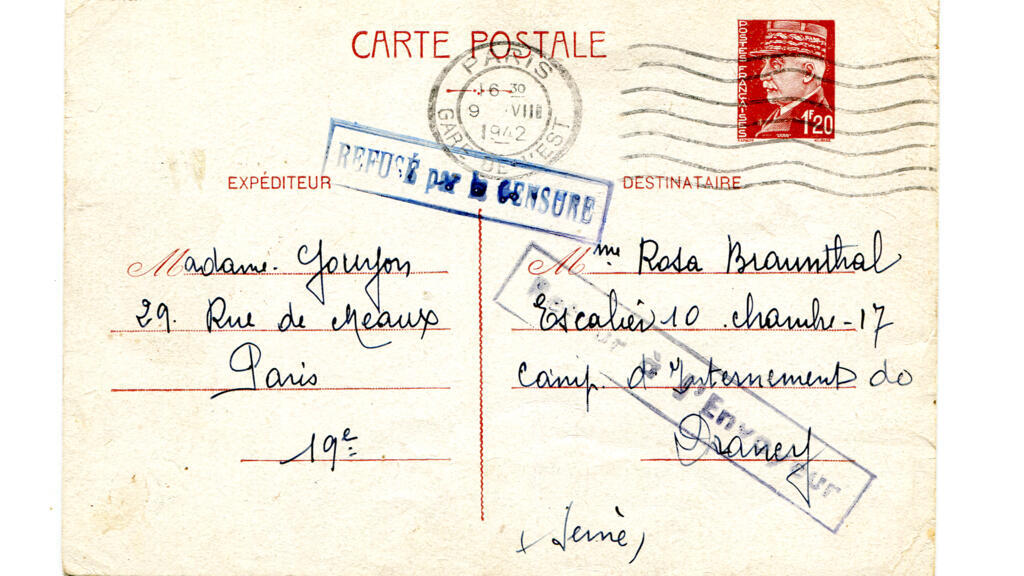 CARTE POSTALE
POSTES FRANÇAISES
1F20
PARIS
16 30
9 VIII
1942
GARE DE L'EST
REFUSÉ par la CENSURE
EXPÉDITEUR
Madame Gourjon
29. Rue de Meaux
Paris
19e
DESTINATAIRE
Mme Rosa Braunthal
Escalier 10 chambre-17
Camp d'Internement de
Drancy
(Seine)
Retour à l'Envoyeur